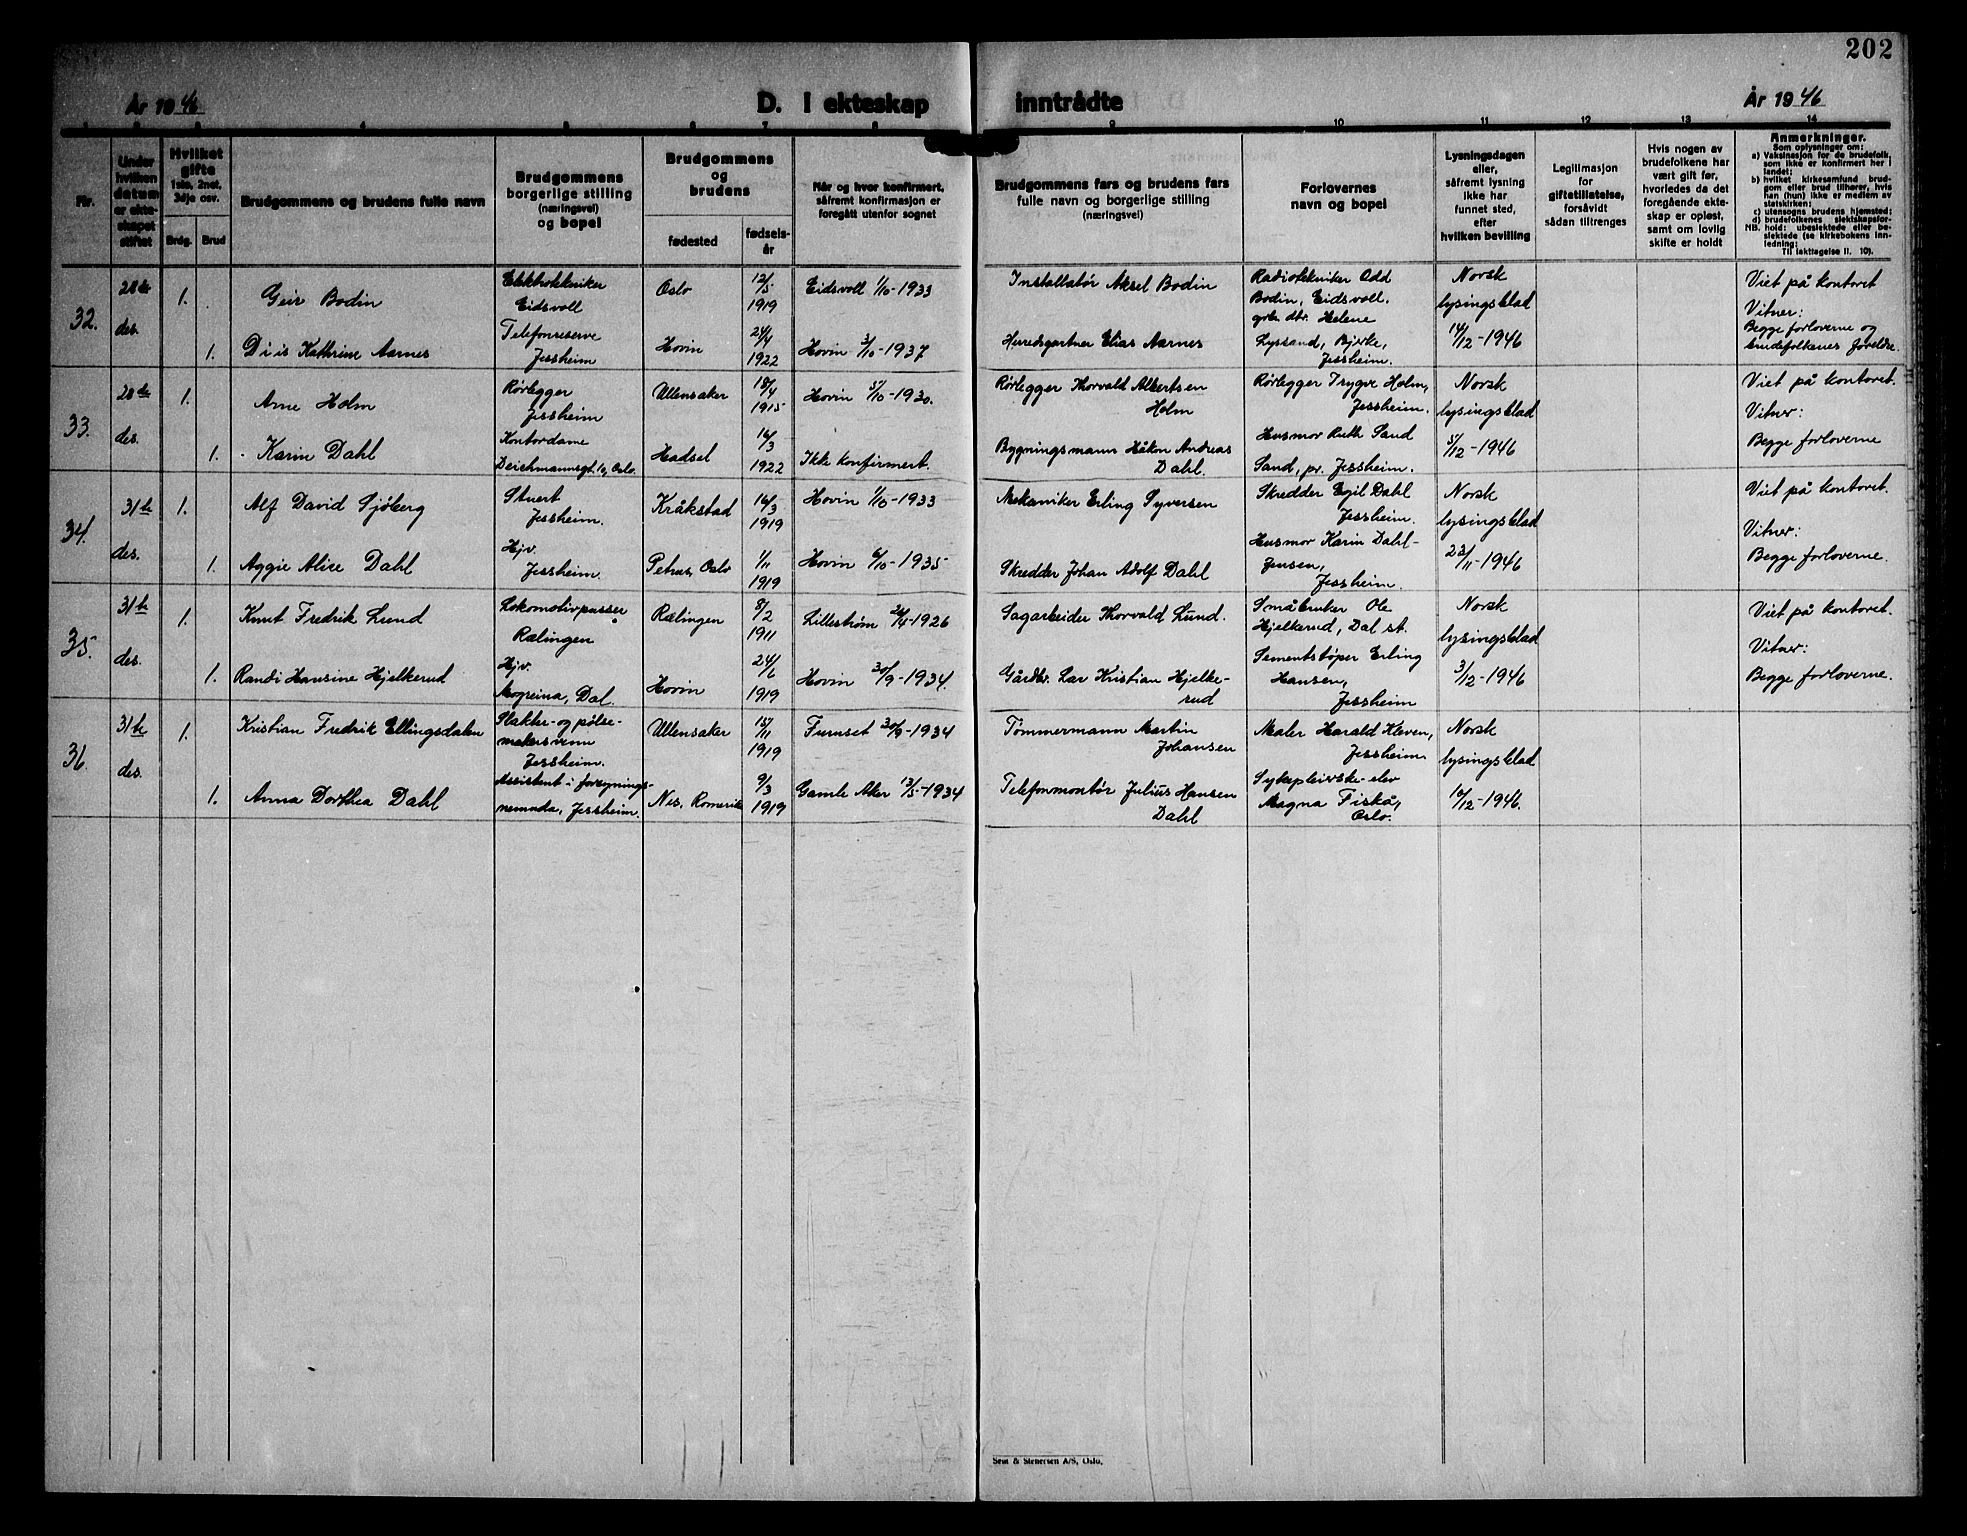 202
År 1946
D. I ekteskap inntrådte
År 1946
1 2 3 4 5 6 7 8 9 10 11 12 13 14
Nr.
Under hvilken datum er ekteskapet stiftet
Hvilket gifte
1ste, 2net, 3dje osv.
Brdg. Brud
Brudgommens og brudens fulle navn
Brudgommens borgerlige stilling (næringsvei) og bopel
Brudgommens og brudens
fødested
fødselsår
Når og hvor konfirmert, såfremt konfirmasjon er foregått utenfor sognet
Brudgommens fars og brudens fars fulle navn og borgerlige stilling (næringsvei)
Forlovernes navn og bopel
Lysningsdagen eller, såfremt lysning ikke har funnet sted, efter hvilken bevilling
Legitimasjon for giftetillatelse, forsåvidt sådan tiltrenges
Hvis nogen av brudefolkene har vært gift før, hvorledes da det foregående ekteskap er opløst, samt om lovlig skifte er holdt
Anmerkninger.
Som oplysninger om:
a) Vaksinasjon for de brudefolk, som ikke er konfirmert her i landet;
b) hvilket kirkesamfund brudgom eller brud tilhører, hvis han (hun) ikke er medlem av statskirken;
c) utensogns brudens hjemsted;
d) brudefolkenes slektskapsforhold: ubeslektede eller beslektede (se kirkebokens innledning;
NB.
Til iakttagelse II. 10).
32.
28de des.
1. Geir Bodin
Elektrotekniker
Eidsvoll
Oslo
12/5 1919
Eidsvoll 1/10-1933
Installatør Aksel Bodin
Radiotekniker Odd
Bodin, Eidsvoll.
grb. dtr. Helene
Lyssand, Bjerke,
Jessheim.
Norsk
lysingsblad
14/12-1946
Viet på kontoret
Vitner:
Begge forloverne og
brudefolkenes foreldre.
1. Diis Kathrine Aarnes
Telefonreserve
Jessheim
Hovin
24/4 1922
Hovin 3/10-1937
Herredsgartner Elias Aarnes
33.
28de des.
1. Arne Holm
Rørlegger
Jessheim
Ullensaker
18/4 1915
Hovin 5/10-1930.
Rørlegger Thorvald Albertsen
Holm
Rørlegger Trygve Holm,
Jessheim.
Husmor Ruth Sand
Sand, pr. Jessheim.
Norsk
lysingsblad
5/12-1946
Viet på kontoret.
Vitner:
Begge forloverne
1. Karin Dahl
Kontordame
Deichmannsgt. 1, Oslo.
Hadsel
16/3 1922
Ikke konfirmert.
Bygningsmann Håkon Andreas
Dahl.
34.
31te des.
1. Alf David Sjøberg
Stuert
Jessheim.
Kråkstad
16/3 1919
Hovin 1/10-1933
Mekaniker Erling Syversen
Skredder Egil Dahl
Jessheim.
Husmor Karin Dahl-
Jensen,
Jessheim.
Norsk
lysingsblad
23/11-1946
Viet på kontoret.
Vitner:
Begge forloverne.
1. Aggie Alice Dahl
Hjv.
Jessheim.
Petrus, Oslo
1/11 1919
Hovin 6/10-1935
Skredder Johan Adolf Dahl
35.
31te des.
1. Knut Fredrik Lund
Lokomotivpusser
Rælingen
Rælingen
8/2 1911
Lillestrøm 24/4-1926
Sagarbeider Thorvald Lund.
Småbruker Ole
Hjelkerud, Dal st.
Sementstøper Erling
Hansen,
Jessheim
Norsk
lysingsblad
3/12-1946
Viet på kontoret.
Vitner:
Begge forloverne.
1. Randi Hansine Hjelkerud
Hjv.
Mogreina, Dal.
Hovin
24/6 1919
Hovin 30/9-1934.
Gårdbr. Lar Kristian Hjelke-
rud
36.
31te des.
1. Kristian Fredrik Ellingsdalen
Slakter- og pølse-
makersvenn
Jessheim.
Ullensaker
15/11 1919
Furuset 30/9-1934
Tømmermann Martin
Johansen
Maler Harald Kleven,
Jessheim.
Sykepleierske-elev
Magna Fiskå,
Oslo.
Norsk
lysingsblad
16/12-1946.
1. Anna Dorthea Dahl
Assistent i forsynings-
nemnda, Jessheim.
Nes. Romerik
9/3 1919
Gamle Aker 13/5-1934
Telefonmontør Julius Hansen
Dahl
Sem & Stenersen A/S, Oslo.